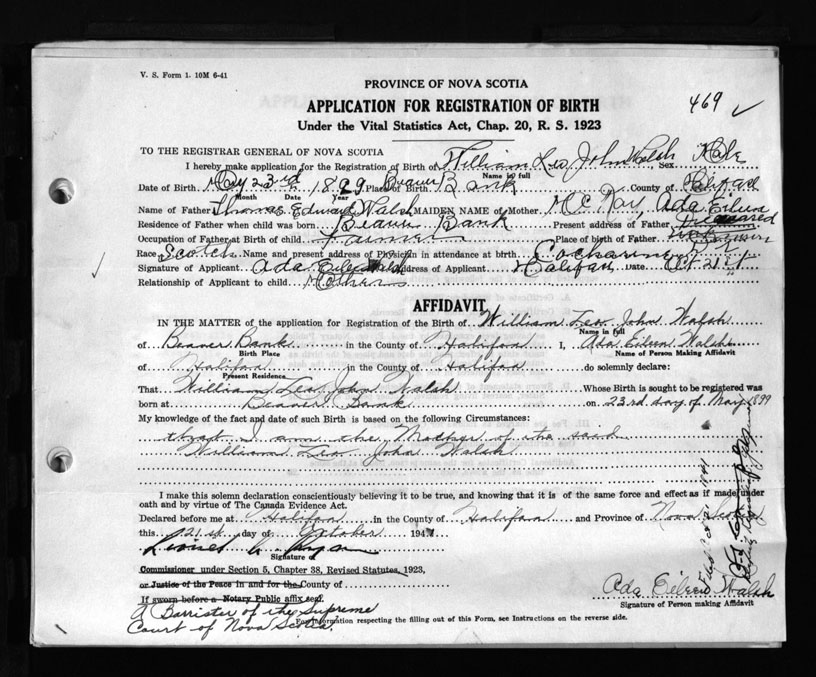 V. S. Form 1. 10M 6-41
PROVINCE OF NOVA SCOTIA
APPLICATION FOR REGISTRATION OF BIRTH
469 ✓
Under the Vital Statistics Act, Chap. 20, R. S. 1923
TO THE REGISTRAR GENERAL OF NOVA SCOTIA
I hereby make application for the Registration of Birth of William Leo John Walsh Sex Male
Name in full
Date of Birth May 23rd 1899 Place of Birth Beaver Bank County of Halifax
Month Date Year
Name of Father Thomas Edward Walsh MAIDEN NAME of Mother McKay, Ada Eileen
Residence of Father when child was born Beaver Bank Present address of Father Deceased
Occupation of Father at Birth of child Farmer Place of birth of Father
Race Scotch Name and present address of Physician in attendance at birth
Signature of Applicant Ada Eileen Walsh Address of Applicant Halifax Date Oct 21st
Relationship of Applicant to child Mother
AFFIDAVIT
IN THE MATTER of the application for Registration of the Birth of William Leo John Walsh
Name in full
of Beaver Bank in the County of Halifax I, Ada Eileen Walsh
Birth Place Name of Person Making Affidavit
of Halifax in the County of Halifax do solemnly declare:
Present Residence
That William Leo John Walsh Whose Birth is sought to be registered was
born at Beaver Bank on 23rd day of May 1899
My knowledge of the fact and date of such Birth is based on the following Circumstances:
that I am the Mother of the said
William Leo John Walsh
I make this solemn declaration conscientiously believing it to be true, and knowing that it is of the same force and effect as if made under
oath and by virtue of The Canada Evidence Act.
Declared before me at Halifax in the County of Halifax and Province of Nova Scotia
this 21st day of October 1941
Signature of
Commissioner under Section 5, Chapter 38, Revised Statutes, 1923,
or Justice of the Peace in and for the County of
If sworn before a Notary Public affix seal.
A Barrister of the Supreme
Court of Nova Scotia.
Ada Eileen Walsh
Signature of Person making Affidavit
For information respecting the filling out of this Form, see Instructions on the reverse side.